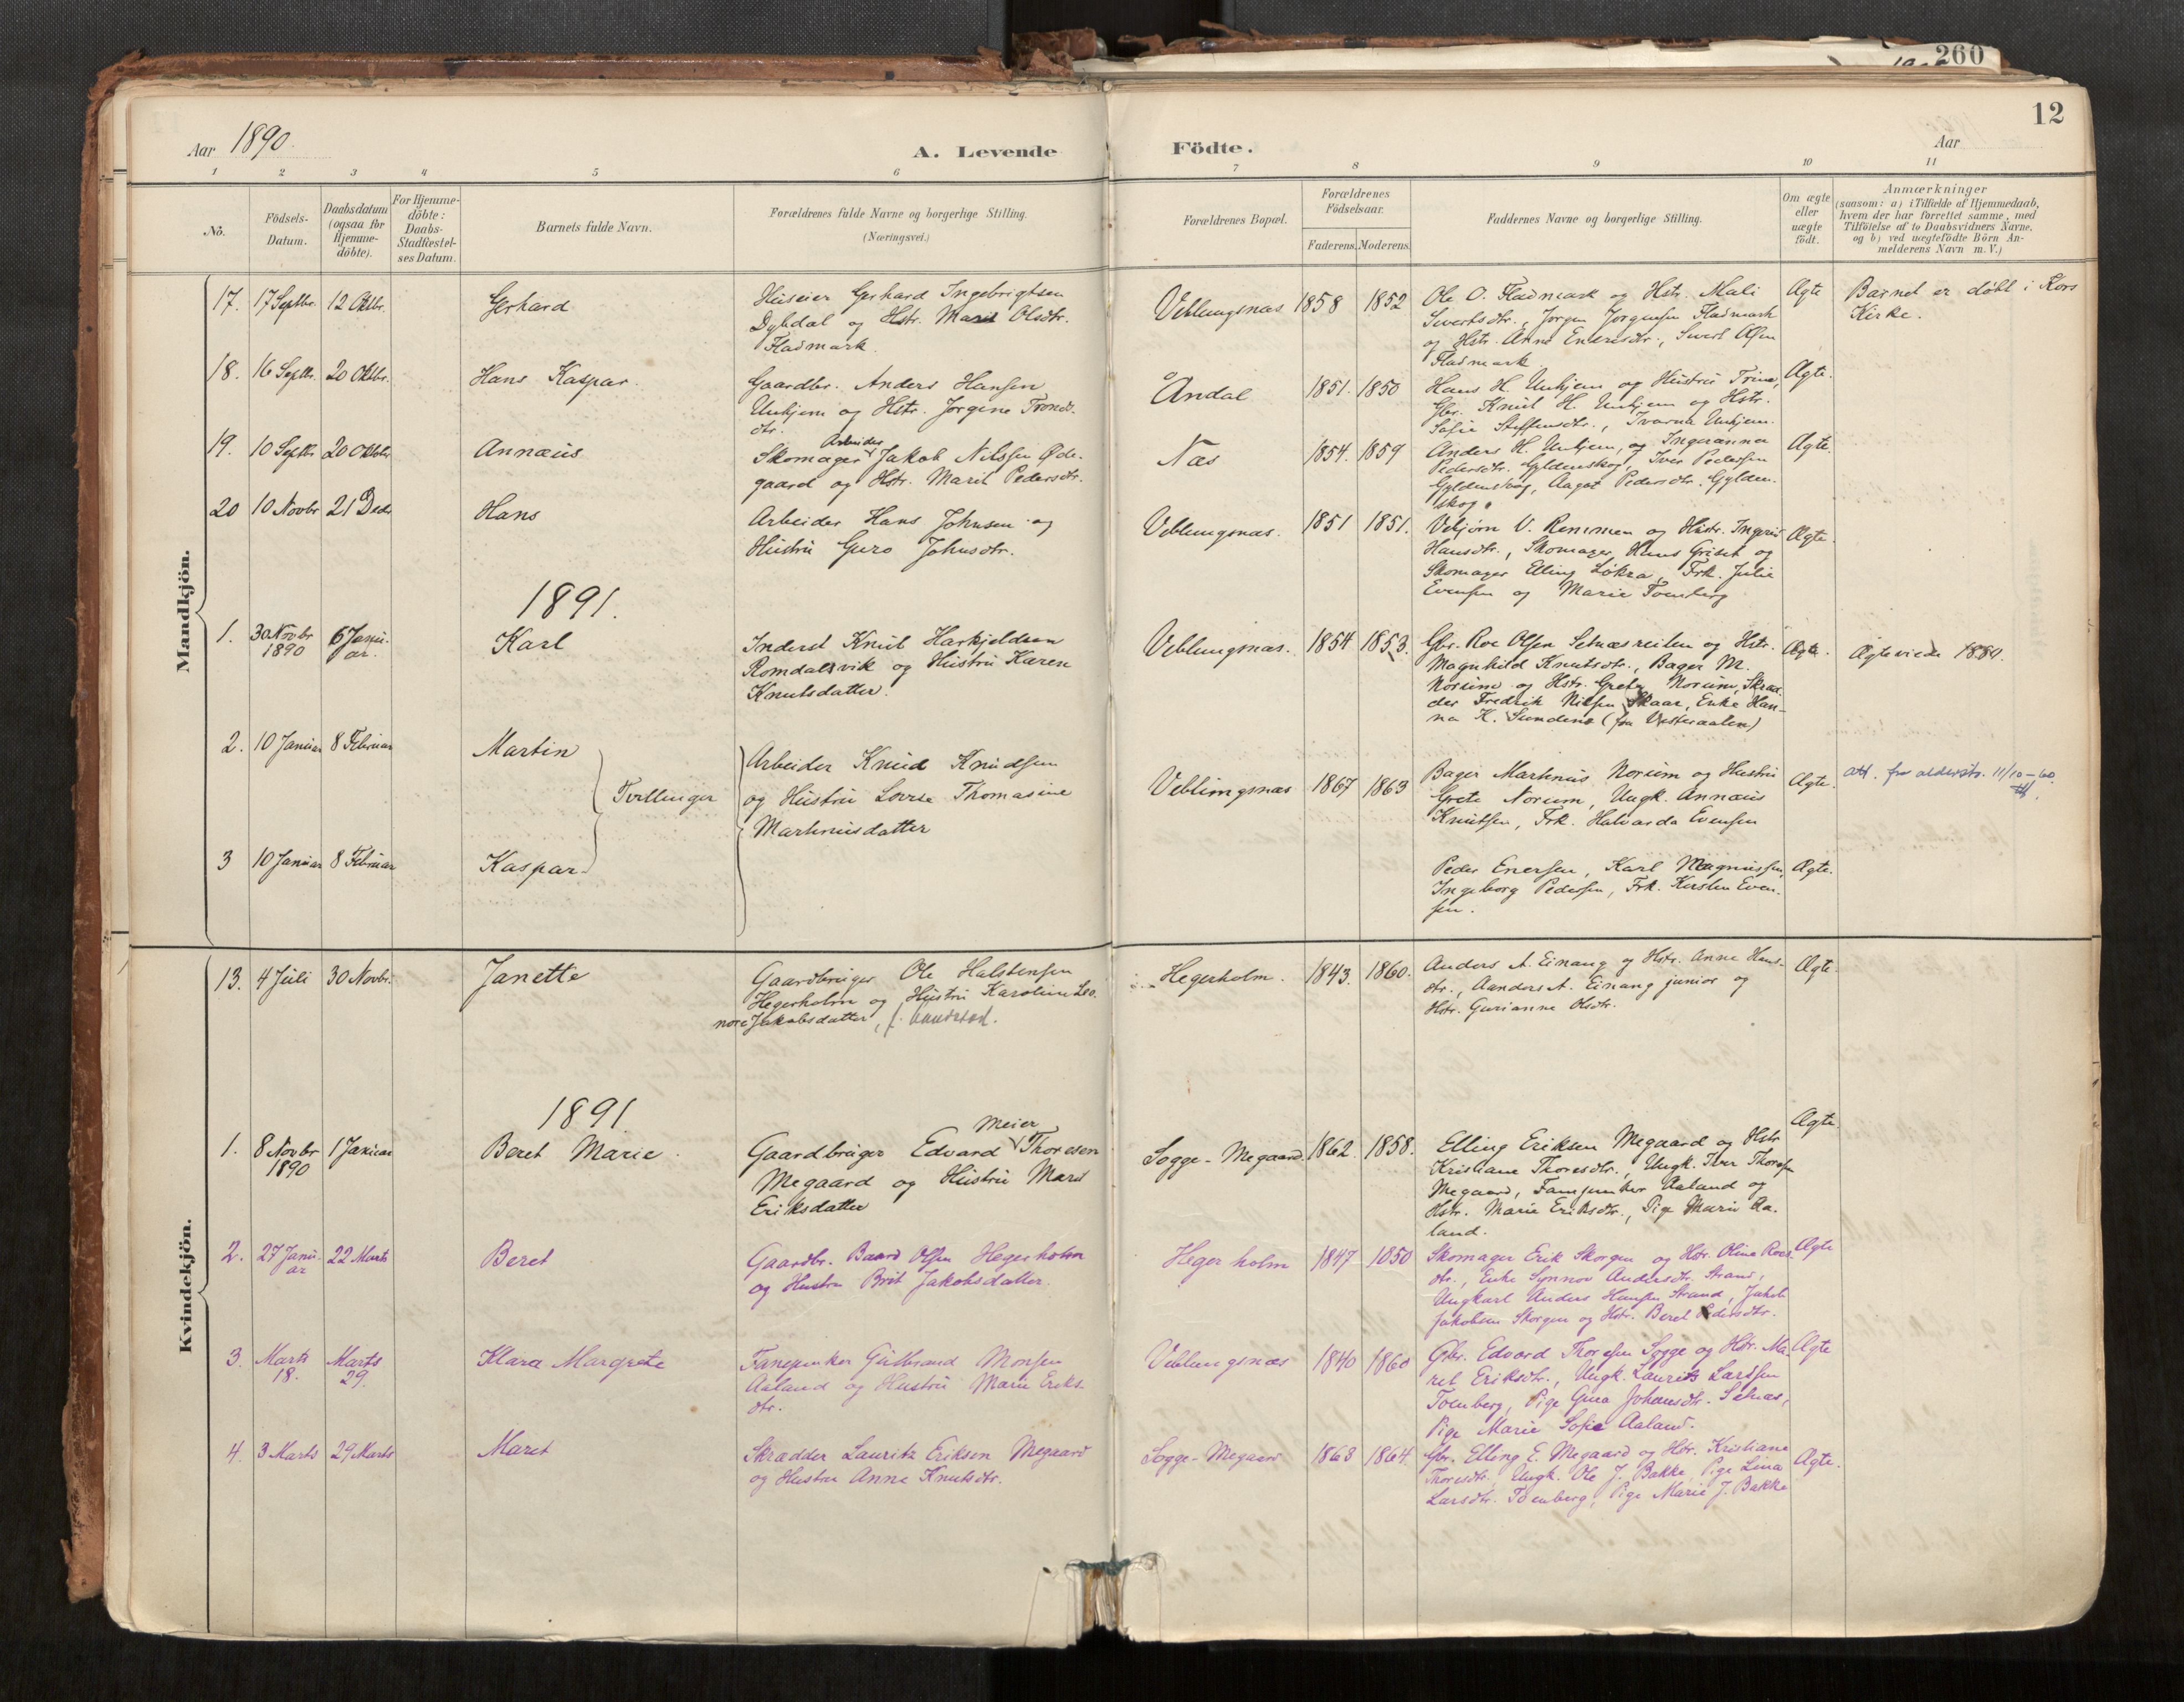 260
12
Aar 1890.
A. Levende Födte.
Aar
1 2 3 4 5 6 7 8 9 10 11
No.
Födsels-Datum.
Daabsdatum (ogsaa for Hjemme-döbte).
For Hjemme-döbte: Daabs-Stadfæstel-ses Datum.
Barnets fulde Navn.
Forældrenes fulde Navne og borgerlige Stilling.
(Næringsvei.)
Forældrenes Bopæl.
Forældrenes Födselsaar.
Faderens. Moderens.
Faddernes Navne og borgerlige Stilling.
Om ægte eller uægte födt.
Anmærkninger
(saasom: a) i Tilfælde af Hjemmedaab, hvem der har forrettet samme, med Tilföielse af to Daabsvidners Navne, og b) ved uægtefödte Börn An-melderens Navn m.V.)
Mandkjön.
17. 17 Septbr. 12 Oktbr. Gerhard
Huseier Gerhard Ingebrigtsen
Dybdal og Hstr. Marit Olsdtr.
Fladmark.
Veblungsnæs 1858 1852
Ole O. Fladmark og Hstr. Mali
Sivertsdtr., Jørgen Jørgensen Fladmark
og Hstr. Anne Endresdtr., Sivert Olsen
Fladmark
Ægte
Barnet er døbt i Kors
Kirke.
18. 16 Septbr. 20 Oktbr. Hans Kaspar.
Gaardbr. Anders Hansen
Unhjem og Hstr. Jørgine Tronds-
dtr.
Åndal 1851. 1850
Hans H. Unhjem og Hustru Trine,
Gbr. Knut H. Unhjem og Hstr.
Sofie Steffensdtr., Ivarna Unhjem.
Ægte.
19. 10 Septbr 20 Oktbr Annæus
Arbeider
Skomager Jakob Nilssen Øde-
gaard og Hstr. Marit Pedersdtr.
Næs 1854. 1859
Anders H. Unhjem, og Ingeranna
Pedersdtr. Gyldenskog, Iver Pedersen
Gyldenskog, Aagot Pedersdtr. Gylden-
skog.
Ægte.
20 10 Novbr 21 Decbr Hans
Arbeider Hans Johnsen og
Hustru Guro Johnsdtr.
Veblungsnæs. 1851 1851.
Vebjørn V. Remmen og Hustr. Ingrid
Hansdtr., Skomager Hans Griset og
Skomager Elling Løkra, Frk. Julie
Evensen og Marie Toenberg
Ægte.
1891.
1. 30 Novbr 1890 6 Janu-ar. Karl
Inderst Knut Harkjeldsen
Romdalsvik og Hustru Karen
Knutsdatter.
Veblungsnæs. 1854 1853.
Gbr. Roe Olsen Setnæsreiten og Hstr.
Magnhild Knutsdtr., Bager M.
Norum og Hstr. Grete Norum, Skræd-
der Fredrik Nilsen Skaar, Enke Han-
na K. Sundene (fra Vesteraalen)
Ægte.
Ægteviede 1880.
2. 10 Januar 8 Februar Martin
Tvillinger
Arbeider Knud Knudsen
og Hustru Lovise Thomasine
Martinusdatter
Veblungsnæs 1867 1863
Bager Martinus Norum og Hustru
Grete Norum, Ungk. Annæus
Knutsen, Frk. Halvarda Evensen
Ægte.
att. for alderstr. 11/10-60.
3 10 Januar 8 Februar Kaspar
Peder Enersen, Karl Magnussen,
Ingeborg Pedersen, Frk. Kirsten Even-
sen.
Ægte.
Kvindekjön.
13. 4 Juli 30 Novbr. Janette
Gaardbruger Ole Halstensen
Hegerholm og Hustru Karoline Leo-
nore Jakobsdatter,
Hegerholm. 1843. 1860.
Anders A. Einang og Hstr. Anne Hans-
dtr., Aanders A. Einang junior og
Hstr. Gurianne Olsdtr.
Ægte.
1891.
1. 8 Novbr 1890 1 Januar Beret Marie.
Meier
Gaardbruger Edvard Thoresen
Megaard og Hustru Maret
Eriksdatter
Sogge-Megaard. 1862. 1858.
Elling Eriksen Megaard og Hstr
Kristiane Thoresdtr., Ungk. Iver Thoresen
Megaard, Fanejunker Aaland og
Hstr. Marie Eriksdtr., Pige Marie Aa-
land.
Ægte.
2. 27 Janu-ar 22 Marts Beret
Gaardbr. Baard Olsen Hegerholm
og Hustru Brit Jakobsdatter.
Hegerholm 1847 1850
Skomager Erik Skorgen og Hstr. Oline Roes-
dtr., Enke Synnøv Andersdtr. Strand,
Ungkarl Anders Hansen Strand, Jakob
Jakobsen Skorgen og Hstr. Beret Pedersdtr.
Ægte
3. Marts 18. Marts 29. Klara Margrete
Fanejunker Gulbrand Monsen
Aaland og Hustru Marie Eriks-
dtr.
Veblungsnæs 1840 1860
Gbr. Edvard Thoresen Sogge og Hstr. Ma-
ret Eriksdtr., Ungk. Laurits Larssen
Toenberg, Pige Gina Johansdtr. Setnæs,
Pige Marie Sofie Aaland.
Ægte
4. 3 Marts 29 Marts Maret
Skrædder Lauritz Eriksen Megaard
og Hustru Anne Knutsdtr.
Sogge-Megaard 1863 1864.
Gbr. Elling E. Megaard og Hstr. Kristiane
Thoresdtr. Ungk. Ole J. Bakke, Pige Lina
Larsdtr. Toenberg, Pige Marie J. Bakke
Ægte.